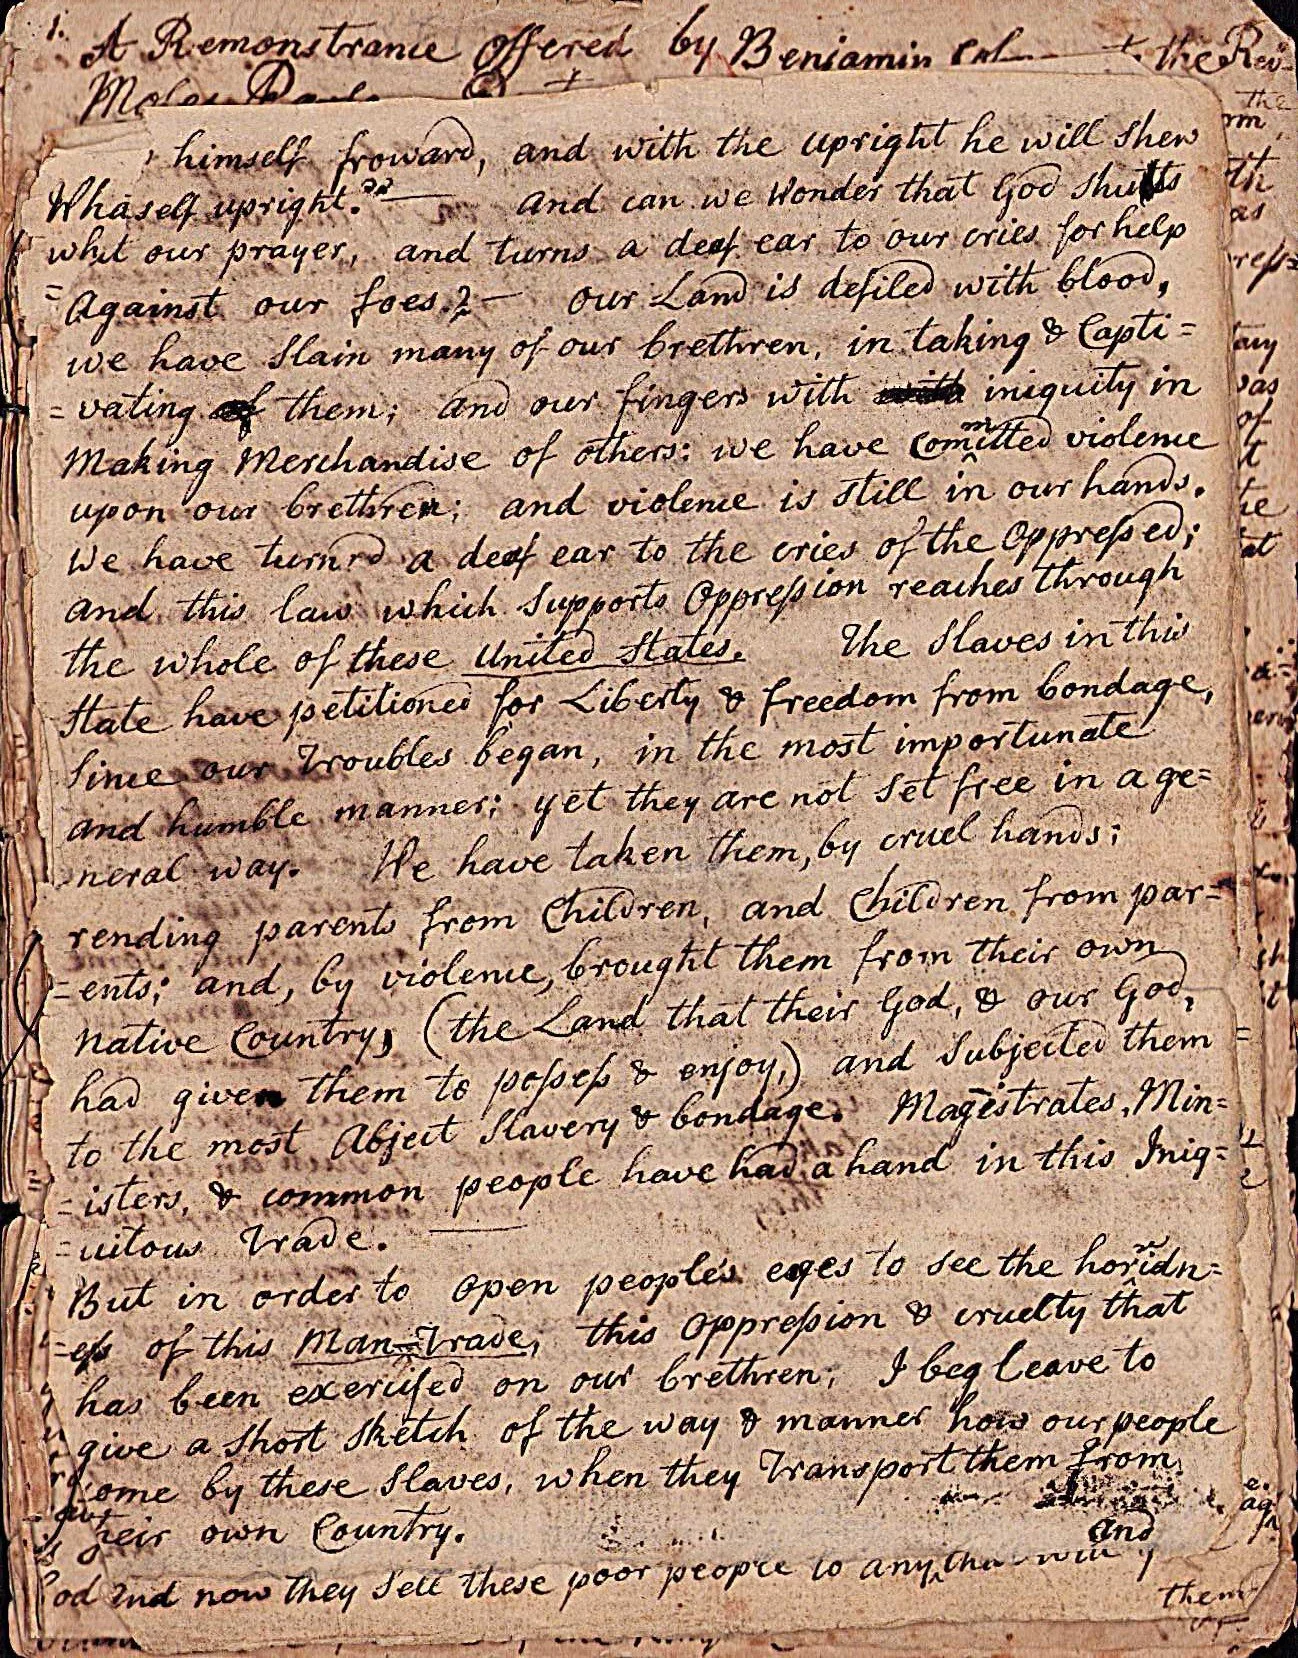 1. A Remonstrance Offered by Benjamin the Rev
himself froward, and with the upright he will shew
himself upright." — And can we Wonder that God shutts
out our prayer, and turns a deaf ear to our cries for help
Against our foes? — Our Land is defiled with blood,
we have Slain many of our brethren, in taking & Capti=
=vating of them; and our fingers with with iniquity in
Making Merchandise of others: we have Comitted violence
m
upon our brethren; and violence is still in our hands.
We have turnrd a deaf ear to the cries of the Oppreſsed;
and this law which Supports Oppreſsion reaches through
the whole of these United States. The Slaves in this
State have petitioned for Liberty & freedom from bondage,
Since our Troubles began, in the most importunate
and humble manner; yet they are not Set free in a ge=
neral way. We have taken them, by cruel hands;
rending parents from Children, and Children from par=
=ents; and, by violence, brought them from their own
Native Country, (the Land that their God, & our God,
had given them to poſseſs & enjoy,) and Subjected them
to the most Abject Slavery & bondage. Magistrates, Min=
=isters, & common people have had a hand in this Iniq=
=uitous Trade. —
But in order to open people's eyes to see the horidn=
r
=eſs of this Man=Trade, this Oppreſsion & cruelty that
has been exercised on our brethren; I beg leave to
give a Short Sketch of the way & manner how our people
come by these Slaves, when they Transport them from
their own Country. and
and now they Sell these poor people to any
them